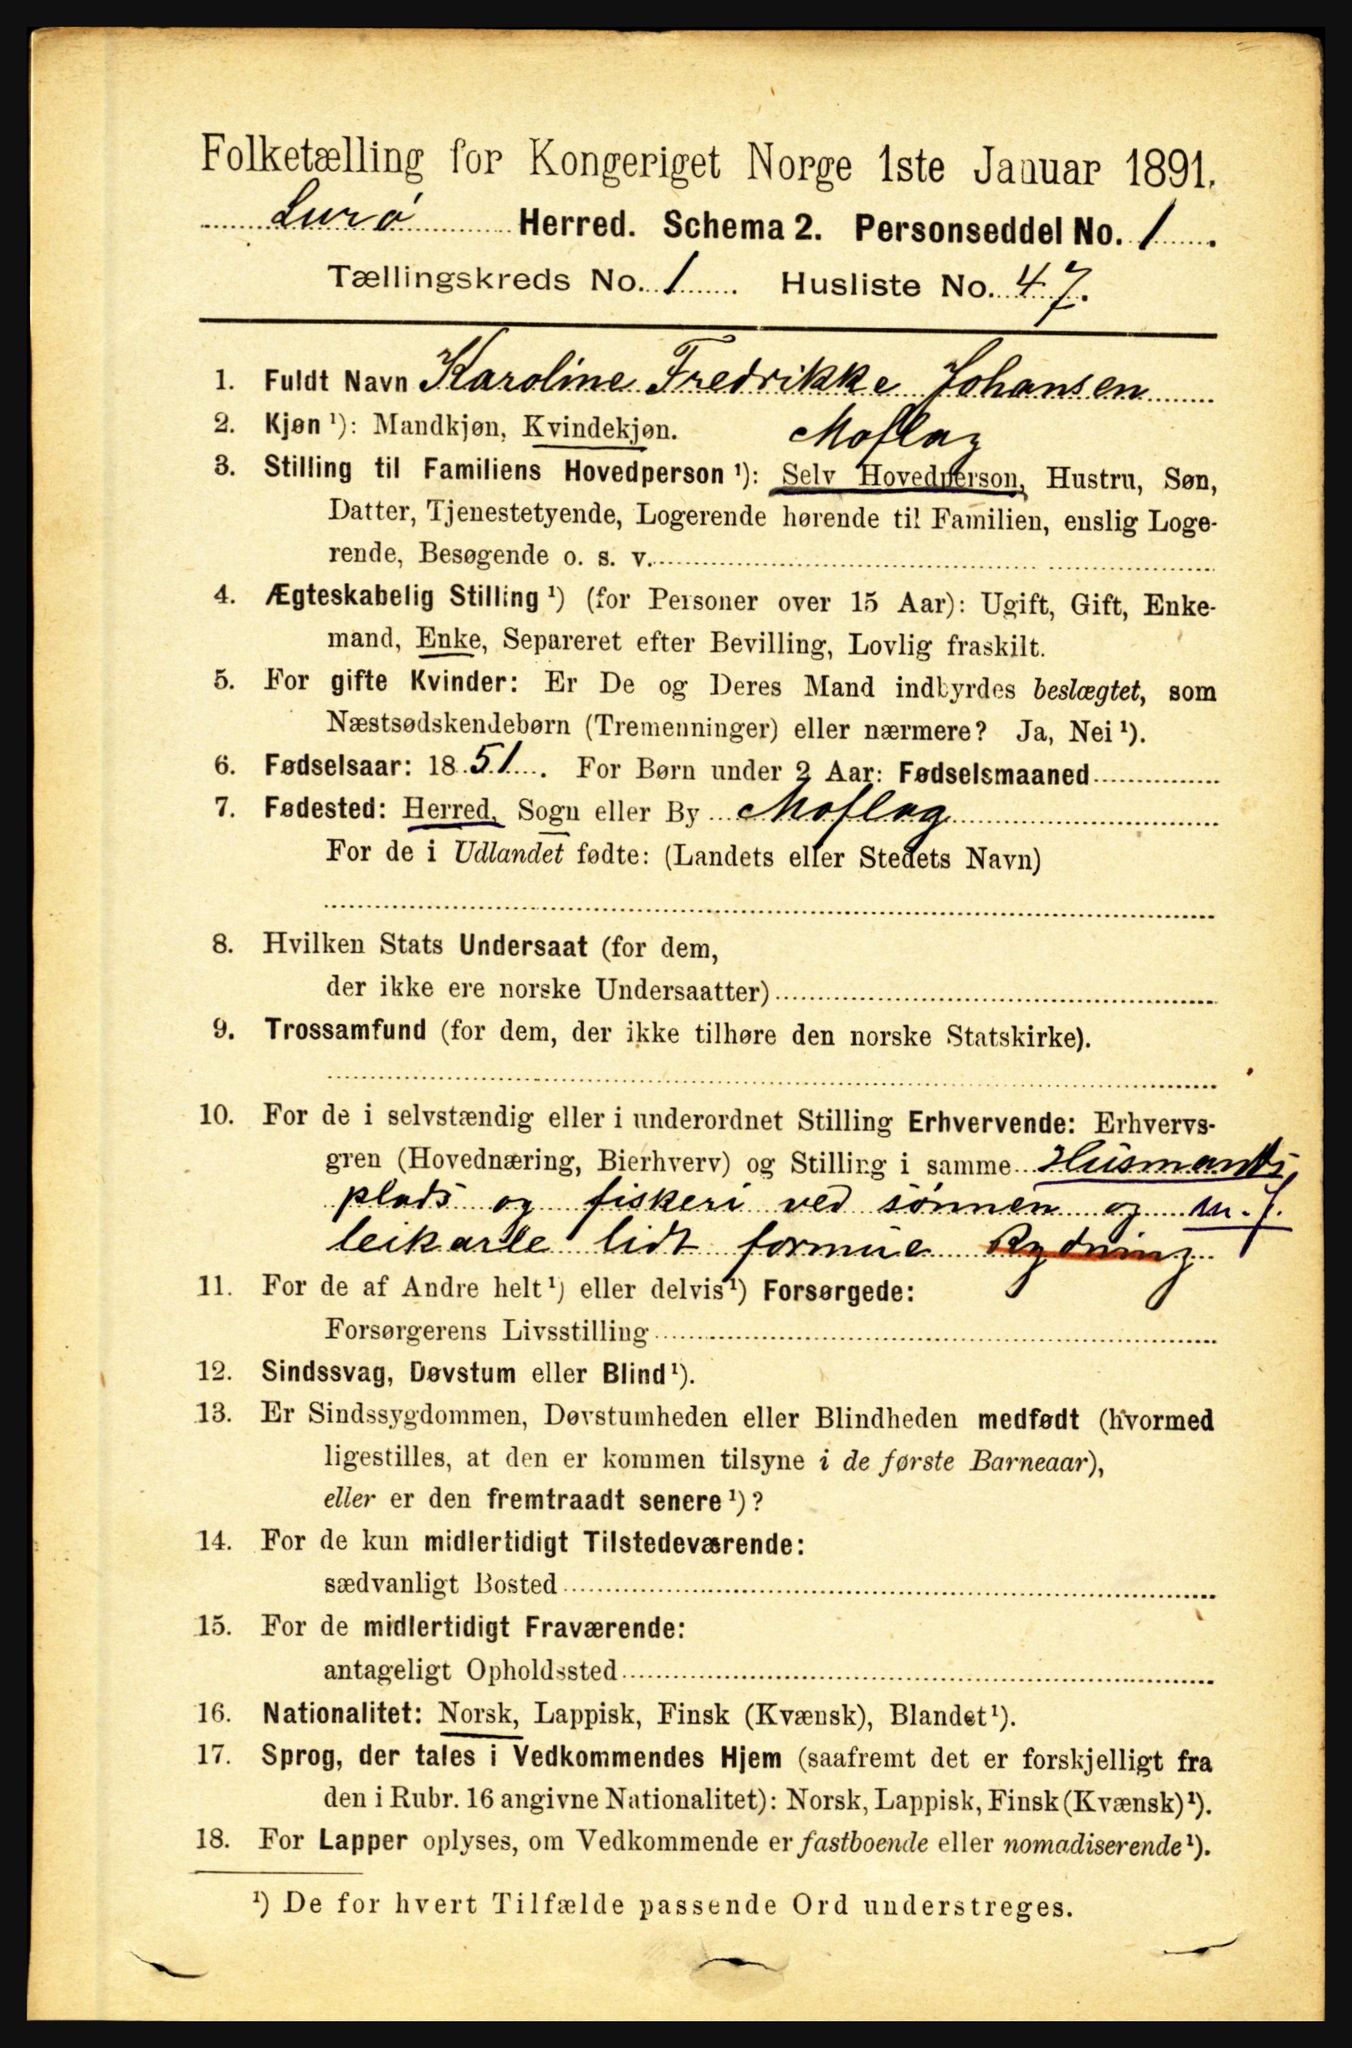 Folketælling for Kongeriget Norge 1ste Januar 1891.
Lurø Herred. Schema 2. Personseddel No. 1.
Tællingskreds No. 1. Husliste No. 47.
1. Fuldt Navn Karoline Fredrikke Johansen
2. Kjøn¹): Mandkjøn, Kvindekjøn. Moflag
3. Stilling til Familiens Hovedperson¹): Selv Hovedperson, Hustru, Søn,
Datter, Tjenestetyende, Logerende hørende til Familien, enslig Loge-
rende, Besøgende o. s. v.
4. Ægteskabelig Stilling¹) (for Personer over 15 Aar): Ugift, Gift, Enke-
mand, Enke, Separeret efter Bevilling, Lovlig fraskilt.
5. For gifte Kvinder: Er De og Deres Mand indbyrdes beslægtet, som
Næstsødskendebørn (Tremenninger) eller nærmere? Ja, Nei¹).
6. Fødselsaar: 1851. For Børn under 2 Aar: Fødselsmaaned
7. Fødested: Herred, Sogn eller By Moflag
For de i Udlandet fødte: (Landets eller Stedets Navn)
8. Hvilken Stats Undersaat (for dem,
der ikke ere norske Undersaatter)
9. Trossamfund (for dem, der ikke tilhøre den norske Statskirke).
10. For de i selvstændig eller i underordnet Stilling Erhvervende: Erhvervs-
gren (Hovednæring, Bierhverv) og Stilling i samme Husmands
plads og fiskeri ved sønnen og m. J.
lidt formue Rydning
11. For de af Andre helt¹) eller delvis¹) Forsørgede:
Forsørgerens Livsstilling
12. Sindssvag, Døvstum eller Blind¹).
13. Er Sindssygdommen, Døvstumheden eller Blindheden medfødt (hvormed
ligestilles, at den er kommen tilsyne i de første Barneaar),
eller er den fremtraadt senere¹)?
14. For de kun midlertidigt Tilstedeværende:
sædvanligt Bosted
15. For de midlertidigt Fraværende:
antageligt Opholdssted
16. Nationalitet: Norsk, Lappisk, Finsk (Kvænsk), Blandet¹).
17. Sprog, der tales i Vedkommendes Hjem (saafremt det er forskjelligt fra
den i Rubr. 16 angivne Nationalitet): Norsk, Lappisk, Finsk (Kvænsk)¹).
18. For Lapper oplyses, om Vedkommende er fastboende eller nomadiserende¹).
¹) De for hvert Tilfælde passende Ord understreges.